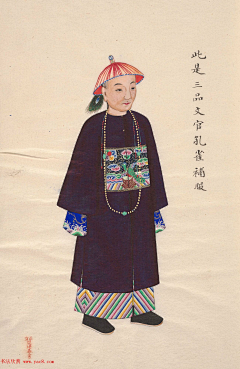 此是三品文官孔雀補服
书法欣赏 www.yac8.com